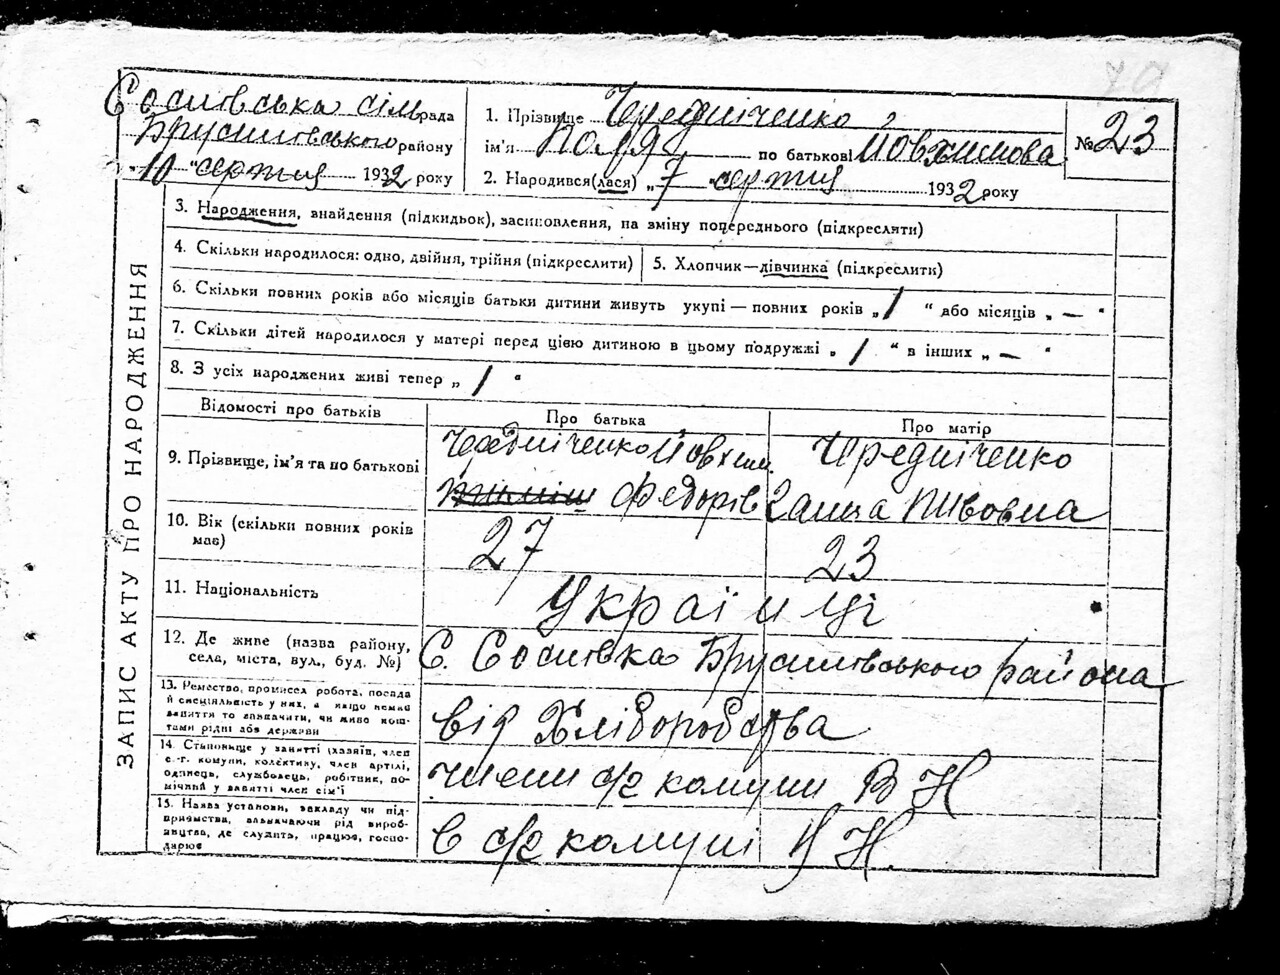 79
Сосновська сільрада
Брусилівського району
"10" серпня 1932 року
1. Прізвище Чередніченко
ім'я Коля по батькові Йовхимова
2. Народився(лася) "7" серпня 1932 року
№ 23
ЗАПИС АКТУ ПРО НАРОДЖЕННЯ
3. Народження, внайдення (підкидьок), засиновлення, на зміну попереднього (підкреслити)
4. Скільки народилося: одно, двійня, трійня (підкреслити)
5. Хлопчик—дівчинка (підкреслити)
6. Скільки повних років або місяців батьки дитини живуть укупі — повних років „1" або місяців „—"
7. Скільки дітей народилося у матері перед цією дитиною в цьому подружжі „1" в інших „—"
8. З усіх народжених живі тепер „1"
Відомості про батьків
Про батька
Про матір
9. Прізвище, ім'я та по батькові
Чередніченко Йовхим
Федорів
Чередніченко
Ганна
10. Вік (скільки повних років
має)
27
23
11. Національність
Українці
12. Де живе (назва району,
села, міста, вул., буд. №)
С. Соснівка Брусилівського района
13. Ремество, промисел робота, посада
й спеціяльність у них, а якщо нема
заняття то зазначити, чи живе кош-
тами рідні або держави
від Хліборобства
14. Становище у занятті (хазяїн, член
с.-г. комуни, колективу, член артілі,
одинець, службовець, робітник, по-
мічний у занятті член сім'ї
члени с/г комуни
15. Назва установи, закладу чи під-
приємства, зазначаючи рід вироб-
ництва, де служить, працює, госпо-
дарює
в с/г комуні